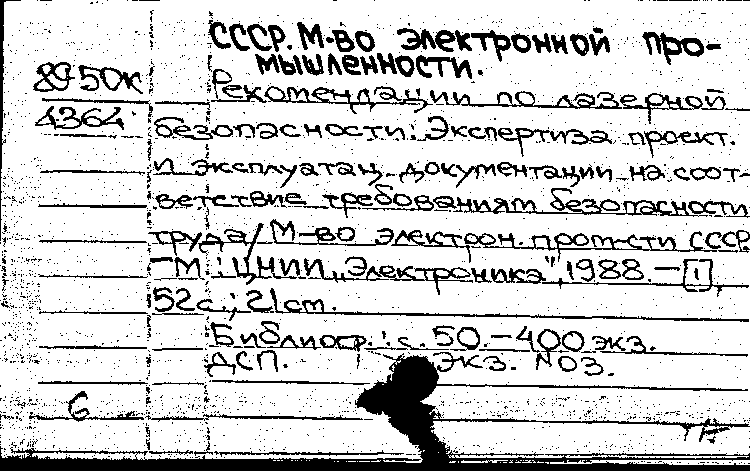 СССР. М-во электронной про-
мышленности.
89 50к
Рекомендации по лазерной
4364
безопасности: Экспертиза проект.
и эксплуатац. документации на соот-
ветствие требованиям безопасности
труда / М-во электрон. пром-сти СССР.
– М.: ЦНИИ „Электроника", 1988. – [1],
52 с.; 21 cm.
Библиогр.: с. 50. – 400 экз.
ДСП. экз. №03.
6